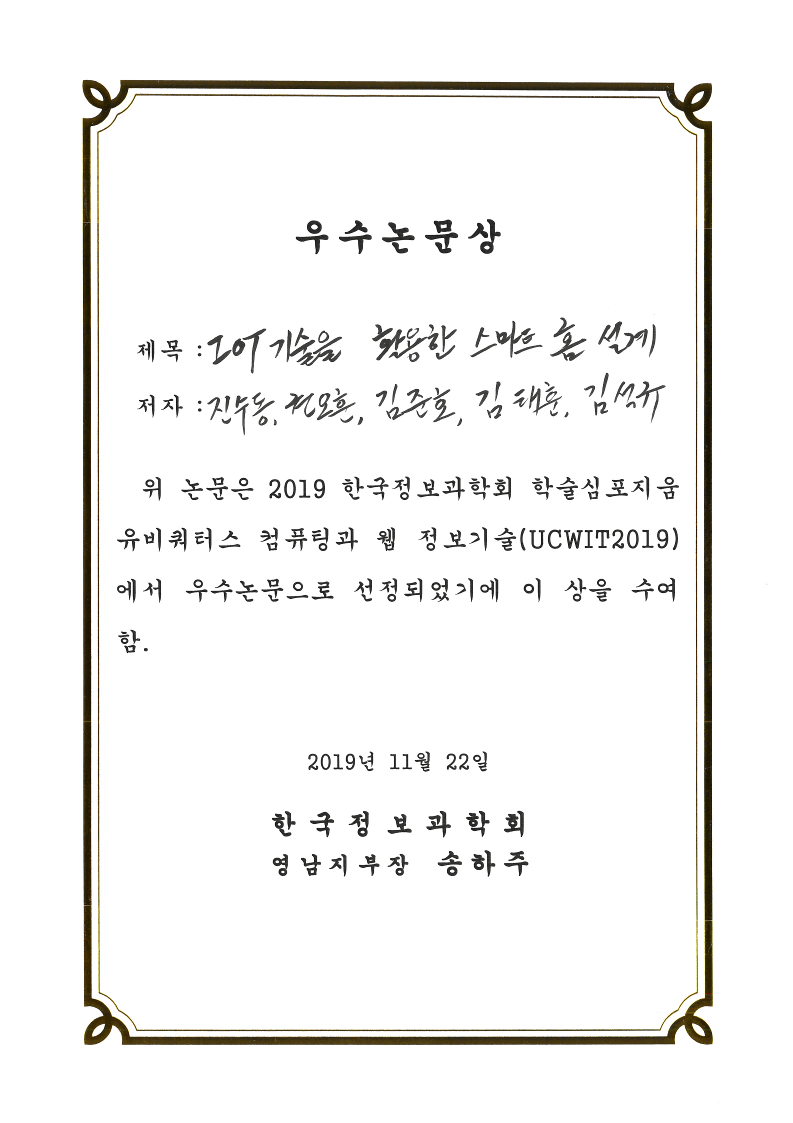 우수논문상
제목 : IOT 기술을 활용한 스마트 홈 설계
저자 : 진수동, 권오훈, 김준호, 김태훈, 김석규
위 논문은 2019 한국정보과학회 학술심포지움
유비쿼터스 컴퓨팅과 웹 정보기술(UCWIT2019)
에서 우수논문으로 선정되었기에 이 상을 수여
함.
2019년 11월 22일
한국정보과학회
영남지부장 송하주